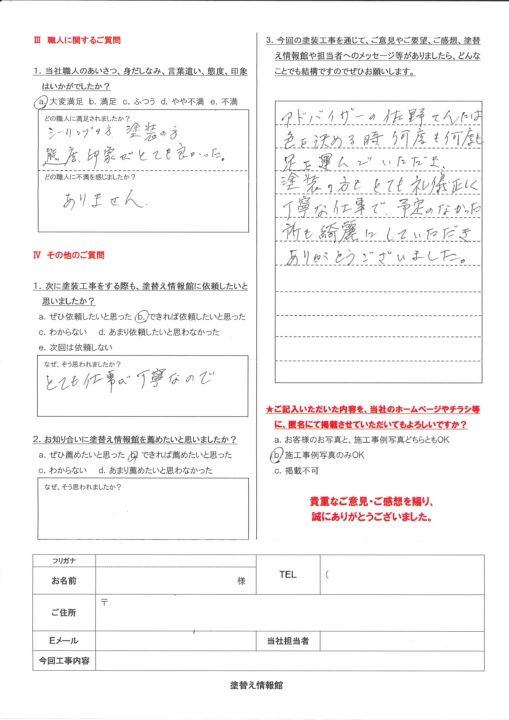 Ⅲ 職人に関するご質問
1. 当社職人のあいさつ、身だしなみ、言葉遣い、態度、印象
はいかがでしたか？
a. 大変満足 b. 満足 c. ふつう d. やや不満 e. 不満
どの職人に満足されましたか？
シーリングの方 塗装の方
態度、印象がとても良かった。
どの職人に不満を感じましたか？
ありません
Ⅳ その他のご質問
1. 次に塗装工事をする際も、塗替え情報館に依頼したいと
思いましたか？
a. ぜひ依頼したいと思った b. できれば依頼したいと思った
c. わからない d. あまり依頼したいと思わなかった
e. 次回は依頼しない
なぜ、そう思われましたか？
とても仕事が丁寧なので
2. お知り合いに塗替え情報館を薦めたいと思いましたか？
a. ぜひ薦めたいと思った b. できれば薦めたいと思った
c. わからない d. あまり薦めたいと思わなかった
なぜ、そう思われましたか？
3. 今回の塗装工事を通じて、ご意見やご要望、ご感想、塗替
え情報館や担当者へのメッセージ等がありましたら、どんな
ことでも結構ですのでぜひお願いします。
アドバイザーの佐野さんには
色を決める時 何度も何度も
足を運んでいただき、
塗装の方も とても礼儀正しく
丁寧な仕事で、予定のなかった
所も綺麗にしていただき
ありがとうございました。
★ご記入いただいた内容を、当社のホームページやチラシ等
に、匿名にて掲載させていただいてもよろしいですか？
a. お客様のお写真と、施工事例写真どちらともOK
b. 施工事例写真のみOK
c. 掲載不可
貴重なご意見・ご感想を賜り、
誠にありがとうございました。
フリガナ
お名前 様 TEL （
ご住所 〒
Eメール 当社担当者
今回工事内容
塗替え情報館